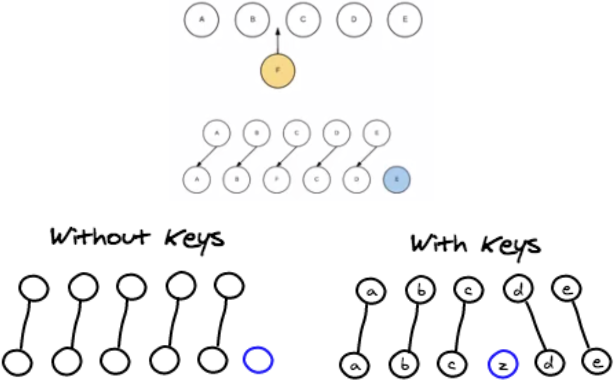 A B C D E
F
A B C D E
A B F C D E
Without Keys
With Keys
a b c d e
a b c z d e